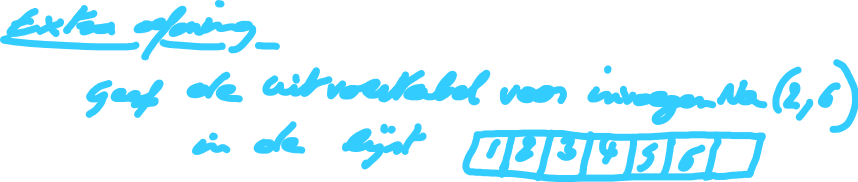 Extra oefening
Geef de uitvoertabel voor invoegenNa(2,6)
in de lijst 1 2 3 4 5 6